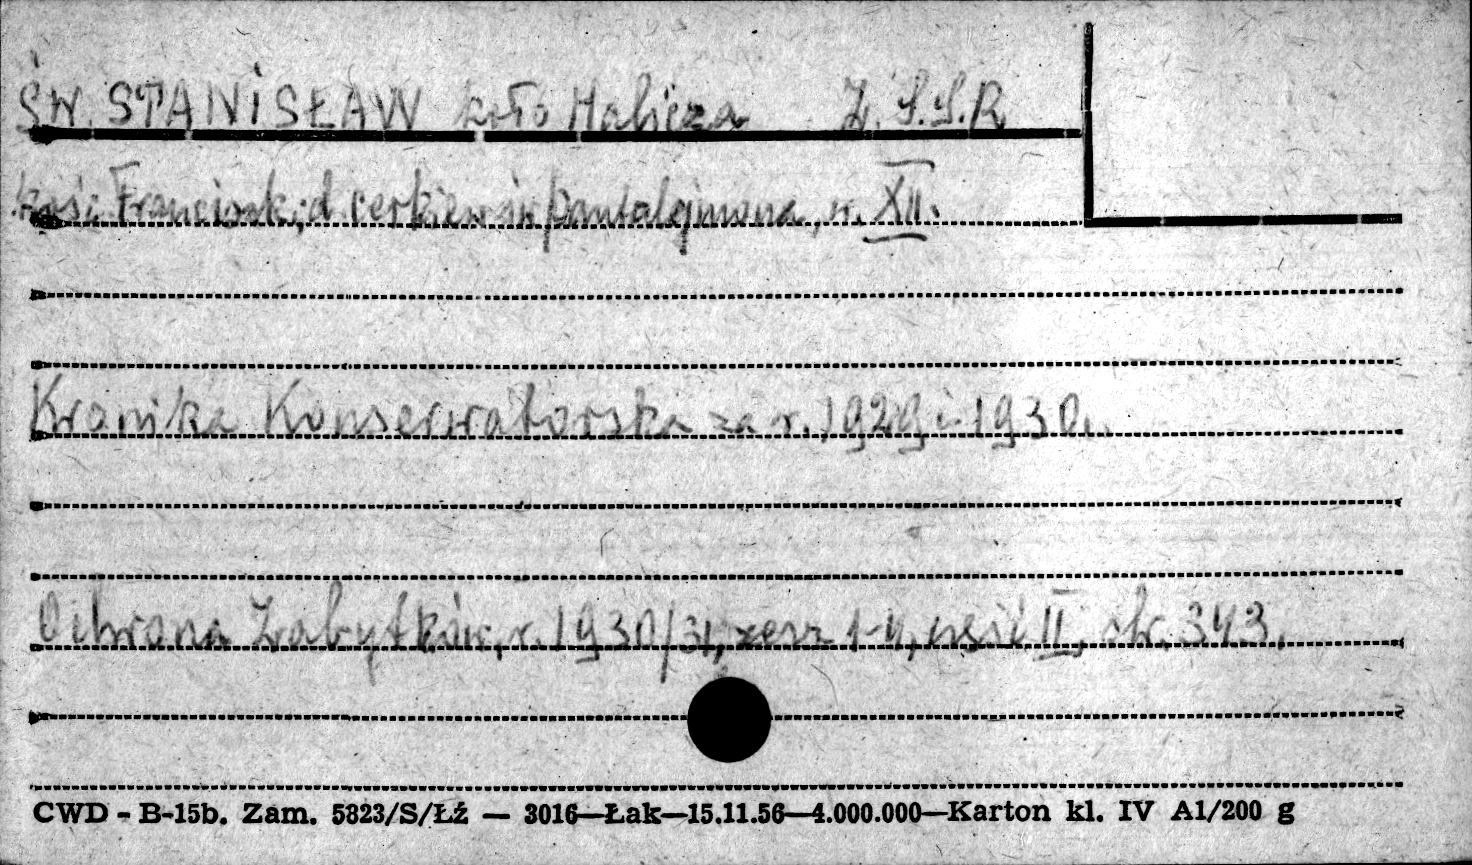 ŚW. STANISŁAW koło Halicza Z.S.S.R
kość. Francisk., d. cerkiew św. Pantalejmona, w. XII.
Kronika Konserwatorska za r. 1929 i 1930.
Ochrona Zabytków, r. 1930/31, zesz 1-4, część II, str. 343.
CWD - B-15b. Zam. 5823/S/Łź — 3016—Łak—15.11.56—4.000.000—Karton kl. IV A1/200 g